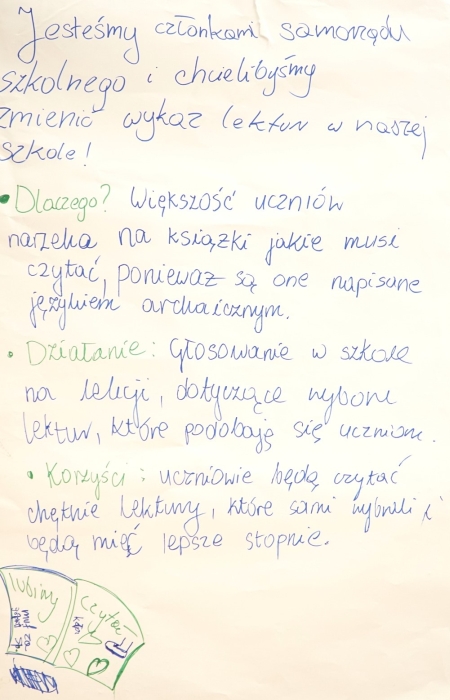 Jesteśmy członkami samorządu
szkolnego i chcielibyśmy
zmienić wykaz lektur w naszej
szkole!
• Dlaczego? Większość uczniów
narzeka na książki jakie musi
czytać, ponieważ są one napisane
językiem archaicznym.
• Działanie: Głosowanie w szkole
na lekcji, dotyczące wyboru
lektur, które podobają się uczniom.
• Korzyści: uczniowie będą czytać
chętnie lektury, które sami wybrali i
będą mieć lepsze stopnie.
lubimy
czytać